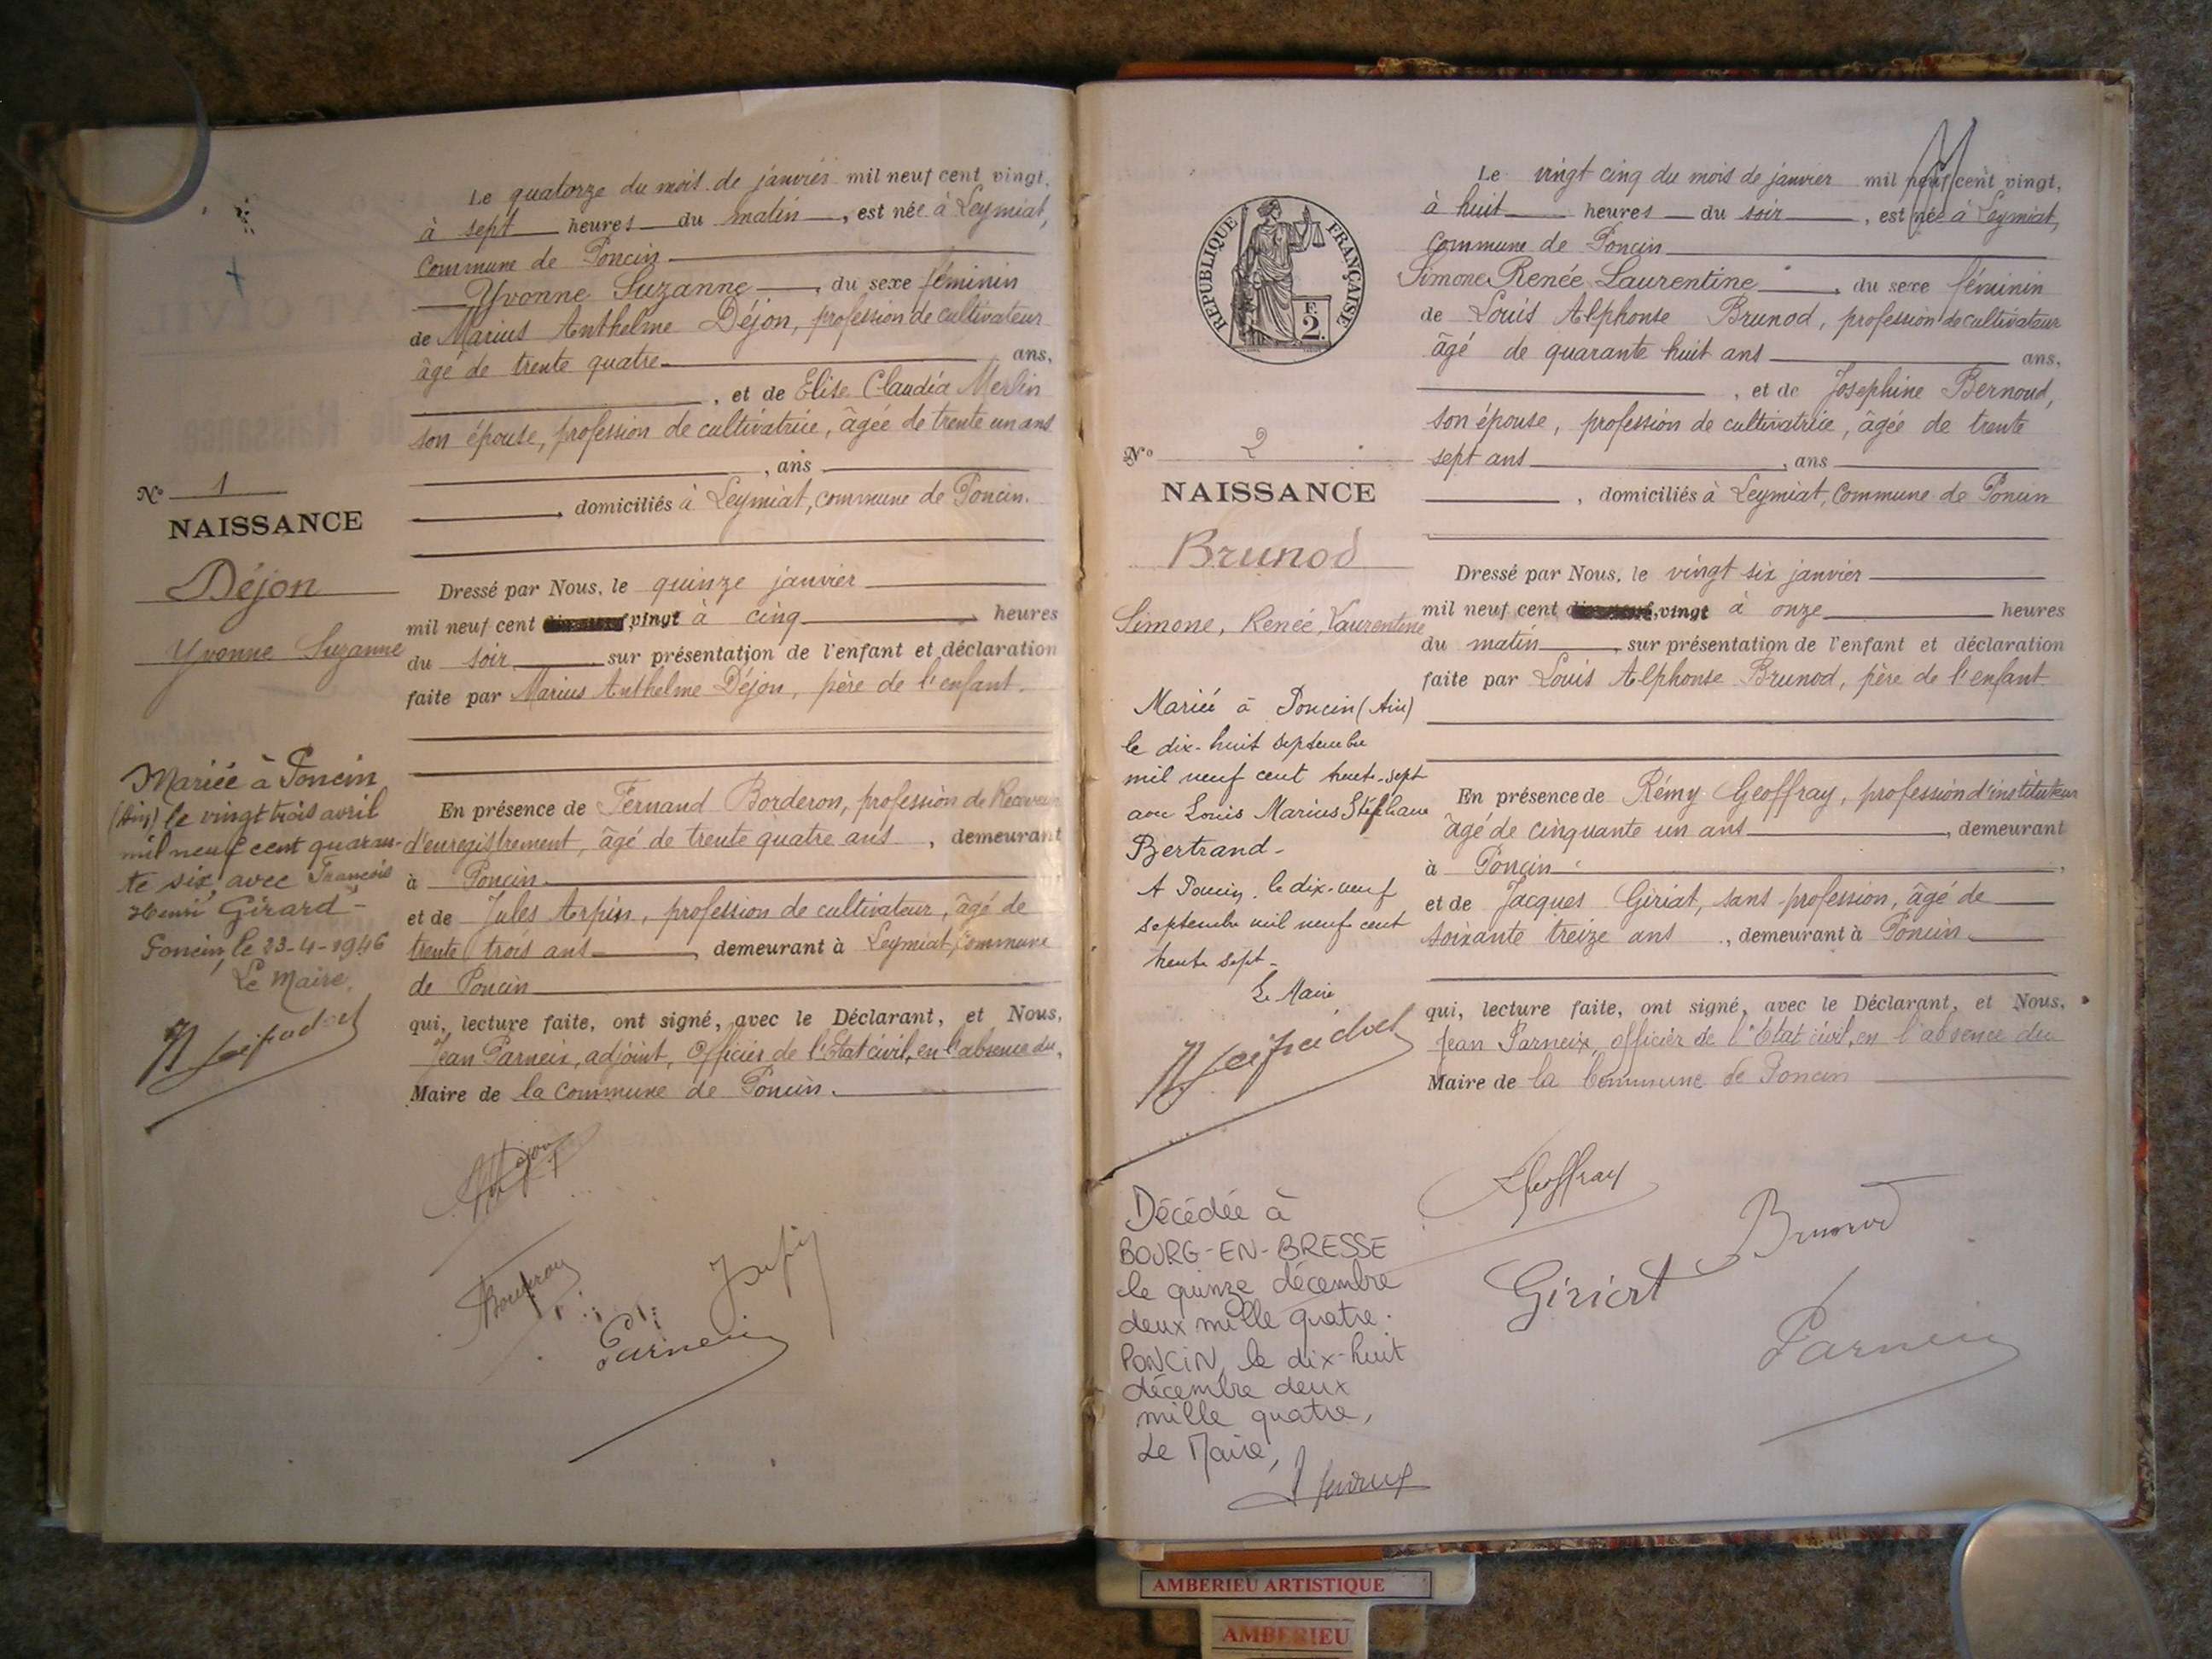 Le quatorze du mois de janvier mil neuf cent vingt,
à sept heures du matin, est née à Leymiat,
commune de Poncin
Yvonne Suzanne, du sexe féminin
de Marius Anthelme Déjon, profession de cultivateur
âgé de trente quatre ans,
, et de Elise Claudia Merlin
son épouse, profession de cultivatrice, âgée de trente un ans
, ans
, domiciliés à Leymiat, commune de Poncin.
No 1
NAISSANCE
Déjon
Yvonne Suzanne
Dressé par Nous, le quinze janvier
mil neuf cent vingt à cinq heures
du soir sur présentation de l'enfant et déclaration
faite par Marius Anthelme Déjon, père de l'enfant.
Mariée à Poncin
(Ain) le vingt trois avril
mil neuf cent quaran-
te six, avec François
Henri Girard -
Poncin, le 23-4-1946
Le Maire,
En présence de Fernand Borderon, profession de Receveur
d'enregistrement, âgé de trente quatre ans, demeurant
à Poncin
et de Jules Arpin, profession de cultivateur, âgé de
trente trois ans, demeurant à Leymiat, commune
de Poncin
qui, lecture faite, ont signé, avec le Déclarant, et Nous,
Jean Parneix, adjoint, Officier de l'Etat civil, en l'absence du,
Maire de la commune de Poncin.
Déjon
Borderon
Arpin
Parneix
REPUBLIQUE FRANÇAISE
E.
2.
Le vingt cinq du mois de janvier mil neuf cent vingt,
à huit heures du soir, est née à Leymiat,
Commune de Poncin
Simone Renée Laurentine, du sexe féminin
de Louis Alphonse Brunod, profession de cultivateur
âgé de quarante huit ans ans,
, et de Josephine Bernoud,
son épouse, profession de cultivatrice, âgée de trente
sept ans, ans
, domiciliés à Leymiat, Commune de Poncin
No 2
NAISSANCE
Brunod
Simone, Renée, Laurentine
Dressé par Nous, le vingt six janvier
mil neuf cent vingt à onze heures
du matin, sur présentation de l'enfant et déclaration
faite par Louis Alphonse Brunod, père de l'enfant.
Mariée à Poncin (Ain)
le dix-huit septembre
mil neuf cent trente-sept
avec Louis Marius Stéphane
Bertrand -
A Poncin, le dix-neuf
septembre mil neuf cent
trente sept -
Le Maire
En présence de Rémy Geoffray, profession d'instituteur
âgé de cinquante un ans, demeurant
à Poncin,
et de Jacques Giriat, sans profession, âgé de
soixante treize ans, demeurant à Poncin
qui, lecture faite, ont signé, avec le Déclarant, et Nous,
Jean Parneix, officier de l'Etat civil, en l'absence du
Maire de la Commune de Poncin
Geoffray
Brunod
Giriat
Parneix
Décédée à
BOURG-EN-BRESSE
le quinze décembre
deux mille quatre.
PONCIN, le dix-huit
décembre deux
mille quatre,
Le Maire,
AMBERIEU ARTISTIQUE
AMBERIEU